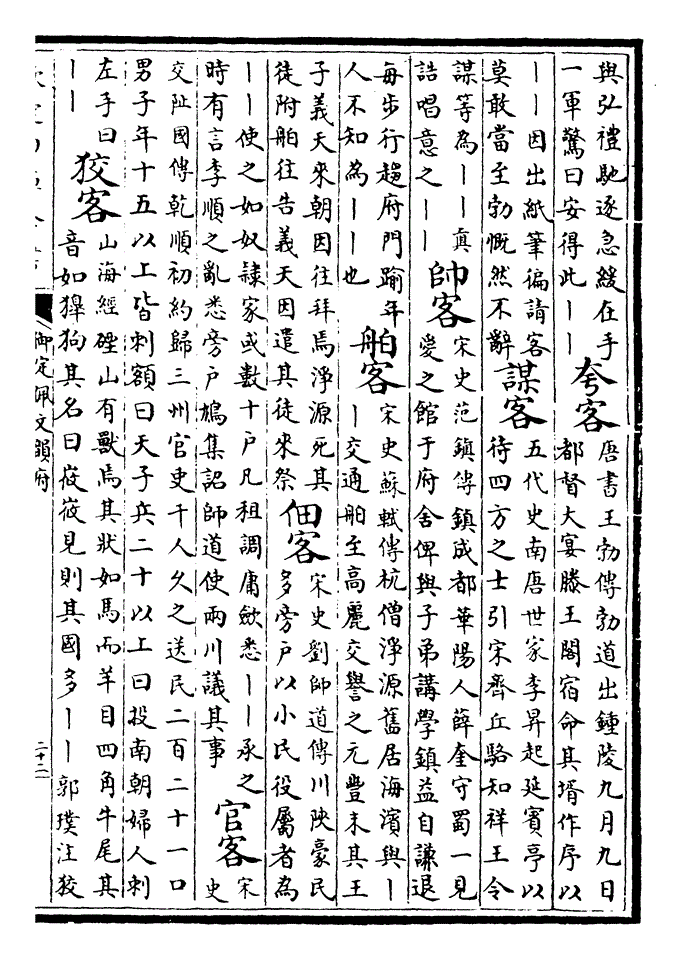 與弘禮馳逐急緩在手
一軍驚曰安得此丨丨
夸客
唐書王勃傳勃道出鍾陵九月九日
都督大宴滕王閣宿命其壻作序以
丨丨因出紙筆徧請客
莫敢當至勃慨然不辭
謀客
五代史南唐世家李昇起延賓亭以
待四方之士引宋齊丘駱知祥王令
謀等為丨丨真
誥唱意之丨丨
帥客
宋史范鎮傳鎮成都華陽人薛奎守蜀一見
愛之館于府舍俾與子弟講學鎮益自謙退
每步行趨府門踰年
人不知為丨丨也
舶客
宋史蘇軾傳杭僧淨源舊居海濱與丨
丨交通舶至高麗交譽之元豐末其王
子義天來朝因往拜焉淨源死其
徒附舶往告義天因遣其徒來祭
佃客
宋史劉師道傳川陜豪民
多旁戶以小民役屬者為
丨丨使之如奴隸家或數十戶凡租調庸斂悉丨丨承之
時有言李順之亂悉旁戶鳩集詔師道使兩川議其事
官客
宋
史
交阯國傳乾順初約歸三州官吏千人久之送民二百二十一口
男子年十五以上皆刺額曰天子兵二十以上曰投南朝婦人刺
左手曰
丨丨
狡客
山海經䃌山有獸焉其狀如馬而羊目四角牛尾其
音如獆狗其名曰峳峳見則其國多丨丨郭璞注狡
御定佩文韻府
二十二